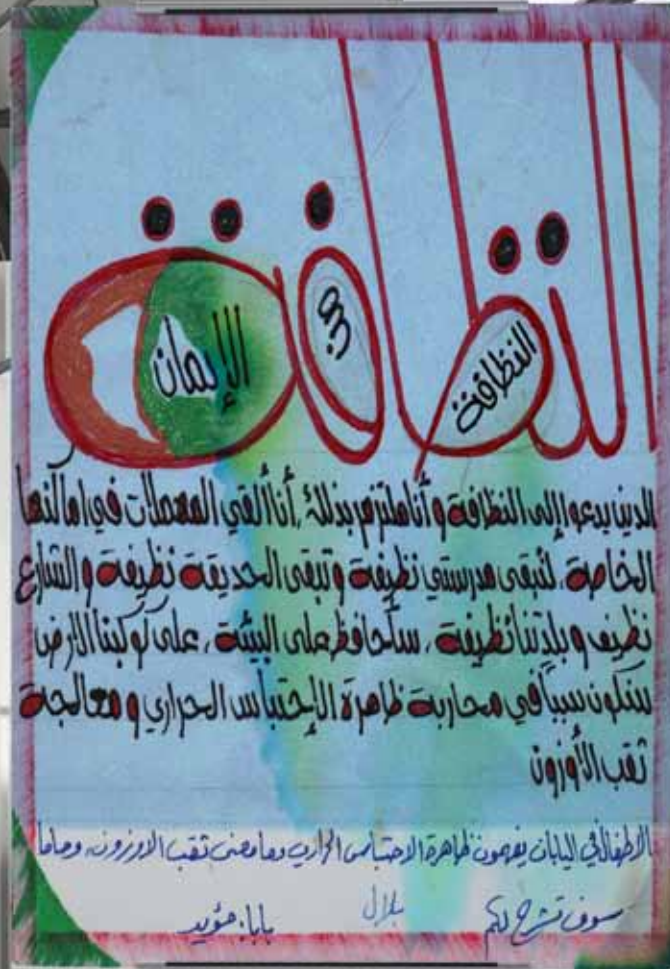 النظافة
النظافة من الإيمان
الدين يدعوا إلى النظافة وأنا ملتزم بذلك، أنا ألقي المهملات في اماكنها
الخاصة، لتبقى مدرستي نظيفة وتبقى الحديقة نظيفة و الشارع
نظيف و بلدتنا نظيفة، سأحافظ على البيئة، على كوكبنا الارض
سنكون سبباً في محاربة ظاهرة الإحتباس الحراري و معالجة
ثقب الأوزون
الاطفال في اليابان يفهمون ظاهرة الاحتباس الحراري وما معنى ثقب الاوزون، وماما
سوف تشرح لكم
بلال
بابا: مؤيد